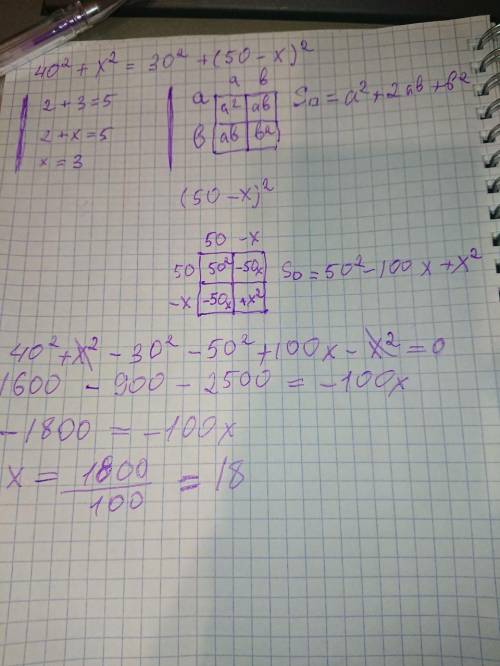 40² + x² = 30² + (50 - x)²
2 + 3 = 5
2 + x = 5
x = 3
a b
a a² ab
b ab b²
S□ = a² + 2ab + b²
(50 - x)²
50 -x
50 50² -50x
-x -50x +x²
S□ = 50² - 100x + x²
40² + x² - 30² - 50² + 100x - x² = 0
1600 - 900 - 2500 = -100x
-1800 = -100x
x = 1800/100 = 18